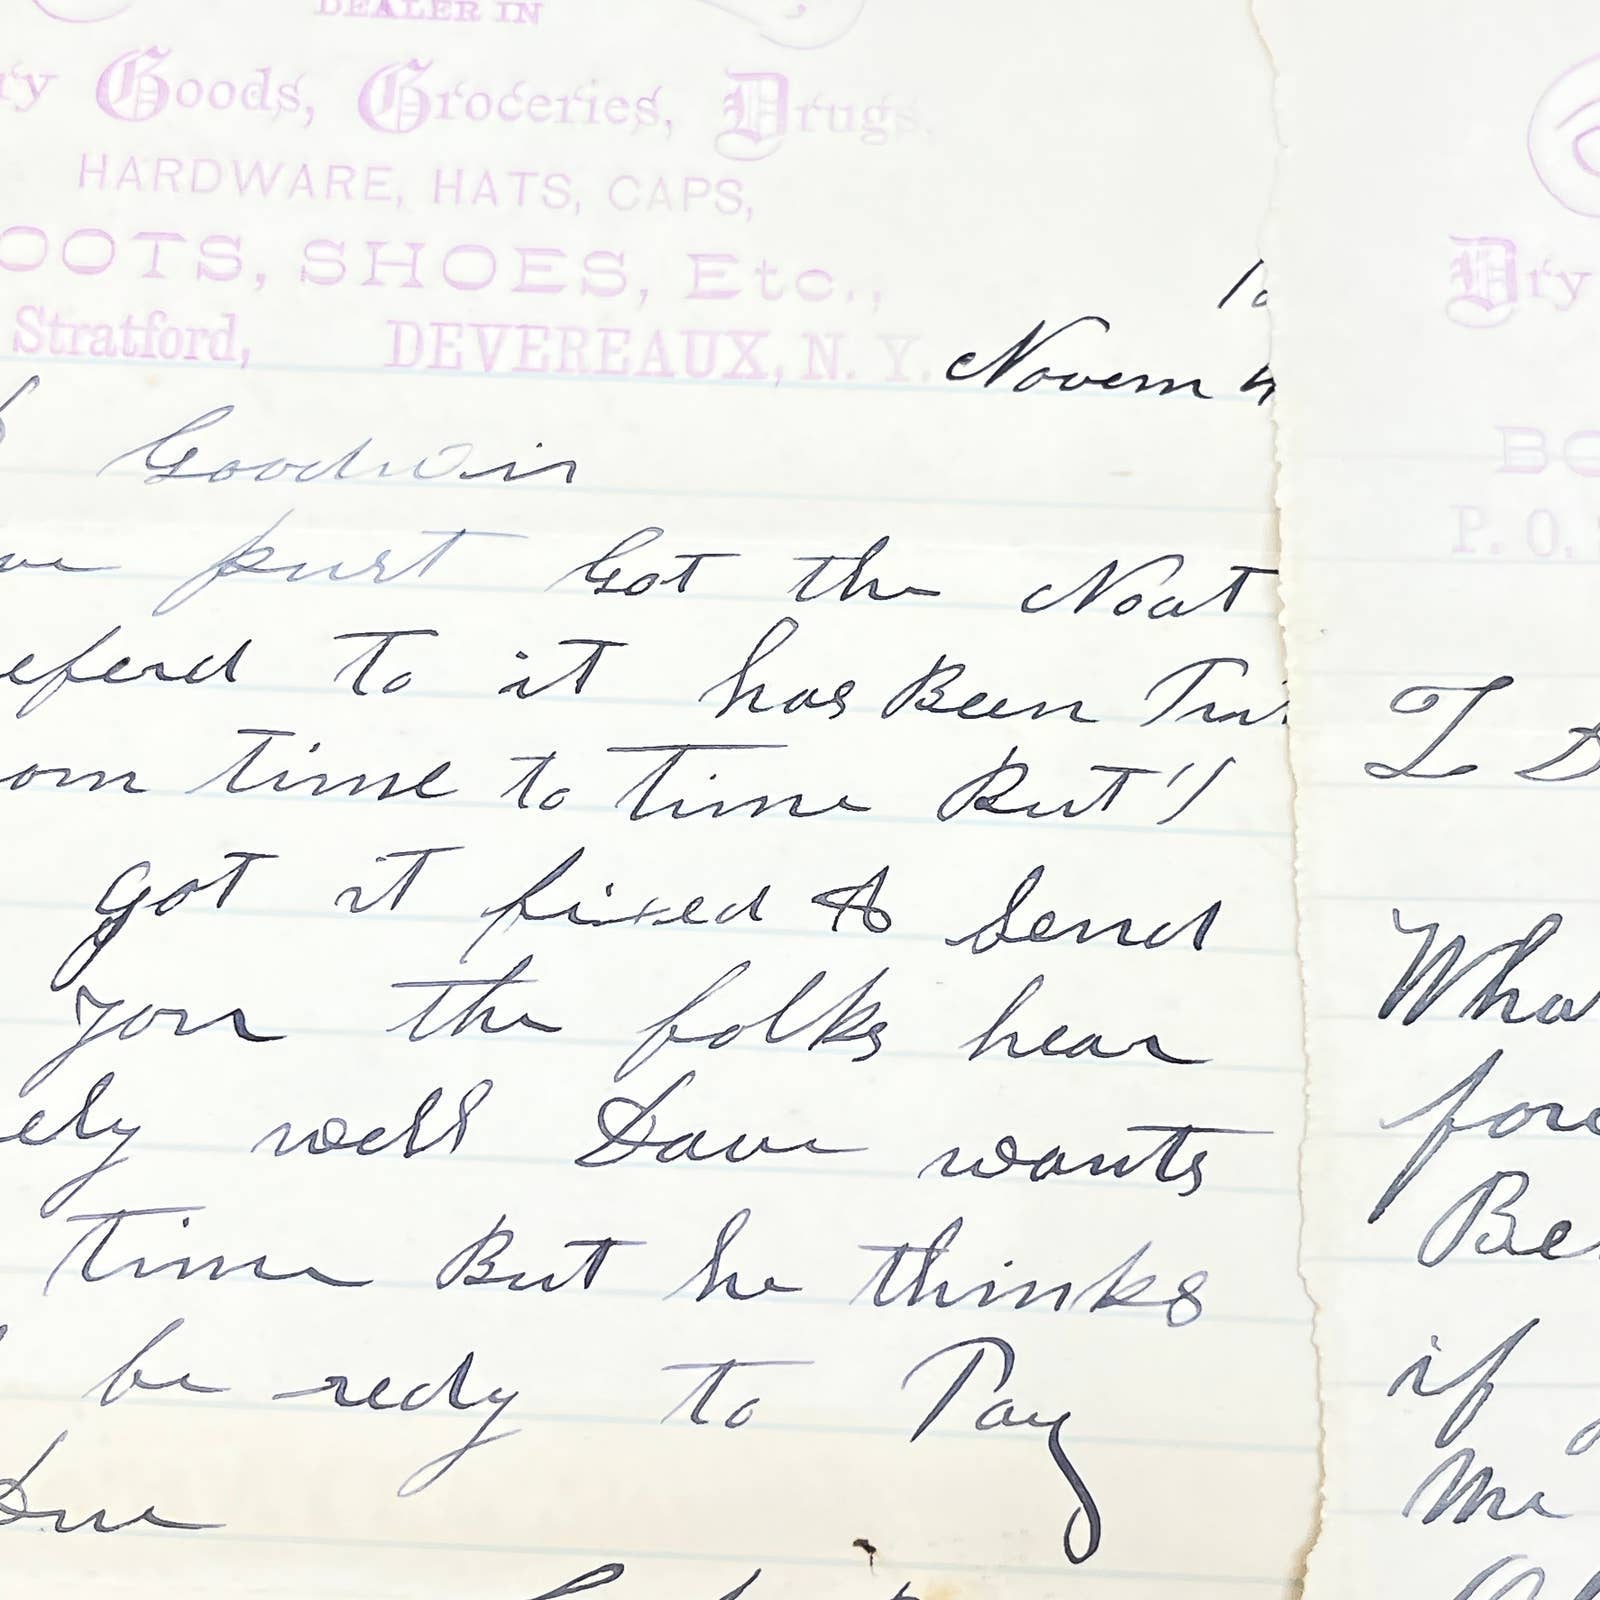 DEALER IN
ry Goods, Groceries, Drugs,
HARDWARE, HATS, CAPS,
OOTS, SHOES, Etc.,
Stratford, DEVEREAUX, N. Y.
Novem 4
Goodwin
Got the Noat
eferd to it has Been
om time to time But I
got it fixed & Send
you the folks hear
ely well Dave wants
time But he thinks
be redy to Pay
Due
Dry
BO
P. O.
Wha
for
Be
if
Me